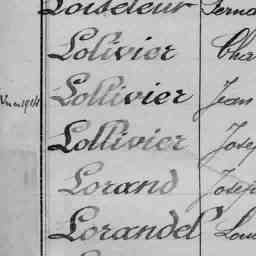 Loiseleur
Lolivier Cha
Lollivier Jean
Lollivier Josep
Lorand Joseph
Lorandel Lou